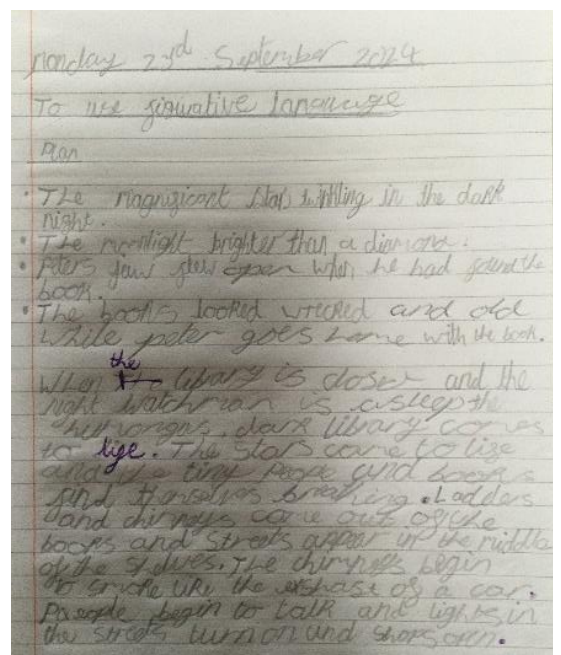 Monday 23rd September 2024
To use figurative language
Plan
• The magnificant star twinkling in the dark
night.
• The moonlight brighter than a diamond.
• Peters jaw flew open when he had found the
book.
• The books looked wrecked and old
while peter goes home with the book.
When the library is closed and the
night watchman is asleep the
humongus, dark library comes
to life. The stars come to life
and the tiny people and books
find themselves breathing. Ladders
and chimneys come out of the
books and streets appear in the middle
of the shelves. The chimneys begin
to smoke like the exhast of a car.
People begin to talk and lights in
the streets turn on and shops open.